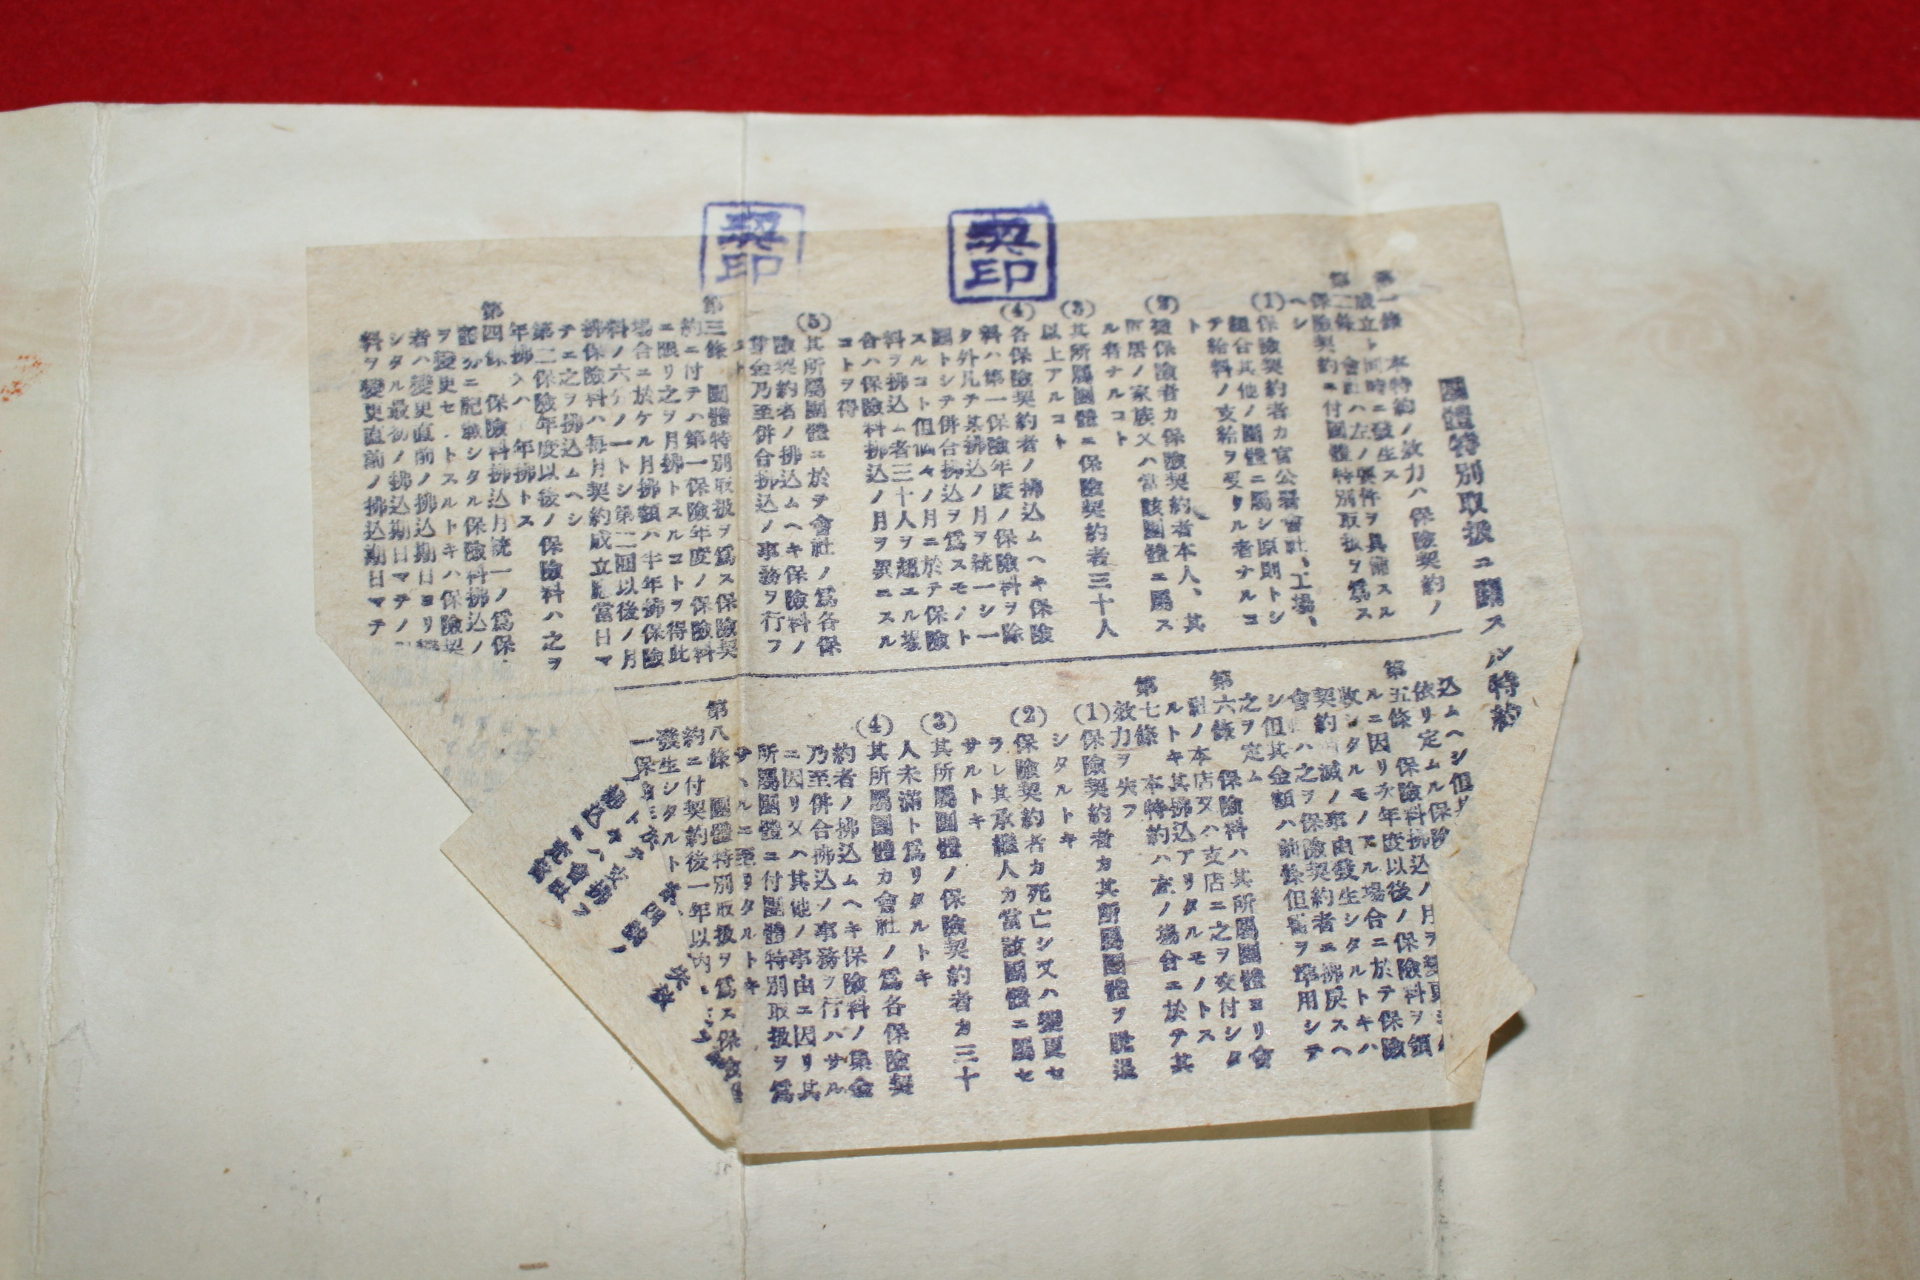 契印
契印
團體特別取扱ニ關スル特約
第一條 本特約ノ效力ハ保險契約ノ
成立ト同時ニ發生ス
第二條 會社ハ左ノ要件ヲ具備スル
保險契約ニ付團體特別取扱ヲ爲ス
ヘシ
(1)保險契約者カ官公署會社、工場、
組合其他ノ團體ニ屬シ原則トシ
テ給料ノ支給ヲ受クル者ナルコ
ト
(2)被保險者カ保險契約者本人、其
同居ノ家族又ハ當該團體ニ屬ス
ル者ナルコト
(3)其所屬團體ニ保險契約者三十人
以上アルコト
(4)各保險契約者ノ拂込ムヘキ保險
料ハ第一保險年度ノ保險料ヲ除
ク外凡テ其拂込ノ月ヲ統一シ一
團トシテ併合拂込ヲ爲スモノト
スルコト但仙々ノ月ニ於テ保險
料ヲ拂込ム者三十人ヲ超エル場
合ハ保險料拂込ノ月ヲ異ニスル
コトヲ得
(5)其所屬團體ニ於テ會社ノ爲各保
險契約者ノ拂込ムヘキ保險料ノ
集金乃至併合拂込ノ事務ヲ行フ
コト
第三條 團體特別取扱ヲ爲ス保險契
約ニ付テハ第一保險年度ノ保險料
ニ限リ之ヲ月拂トスルコトヲ得此
場合ニ於ケル月拂額ハ半年拂保險
料ノ六分ノ一トシ第二回以後ノ月
拂保險料ハ毎月契約成立應當日マ
テニ之ヲ拂込ムヘシ
第二保險年度以後ノ保險料ハ之ヲ
年拂又ハ半年拂トス
第四條 保險料拂込月統一ノ爲保
險證券ニ記載シタル保險料拂込ノ
月ヲ變更セントスルトキハ保險契
約者ハ變更直前ノ拂込期日ヨリ變
更シタル最初ノ拂込期日マテノ
料ヲ變更直前ノ拂込期日マテ
込ムヘシ但其
依リ定ムル保險
第五條 保險料拂込ノ月ヲ變更シ
ルニ因リ次年度以後ノ保險料ヲ領
收シタルモノアル場合ニ於テ保險
契約消滅ノ事由發生シタルトキハ
會社ハ之ヲ保險契約者ニ拂戾スヘ
シ但其金額ハ前條但書ヲ準用シテ
之ヲ定ム
第六條 保險料ハ其所屬團體ヨリ會
社ノ本店又ハ支店ニ之ヲ交付シタ
ルトキ其拂込アリタルモノトス
第七條 本特約ハ左ノ場合ニ於テ其
效力ヲ失フ
(1)保險契約者カ其所屬團體ヲ脫退
シタルトキ
(2)保險契約者カ死亡シ又ハ變更セ
ラレ其承繼人カ當該團體ニ屬セ
サルトキ
(3)其所屬團體ノ保險契約者カ三十
人未滿ト爲リタルトキ
(4)其所屬團體カ會社ノ爲各保險契
約者ノ拂込ムヘキ保險料ノ集金
乃至併合拂込ノ事務ヲ行ハサル
ニ因リ又ハ其他ノ事由ニ因リ其
所屬團體ニ付團體特別取扱ヲ爲
サヽルニ至リタルトキ
第八條 團體特別取扱ヲ爲ス保險
約ニ付契約後一年以內
發生シタルトキ